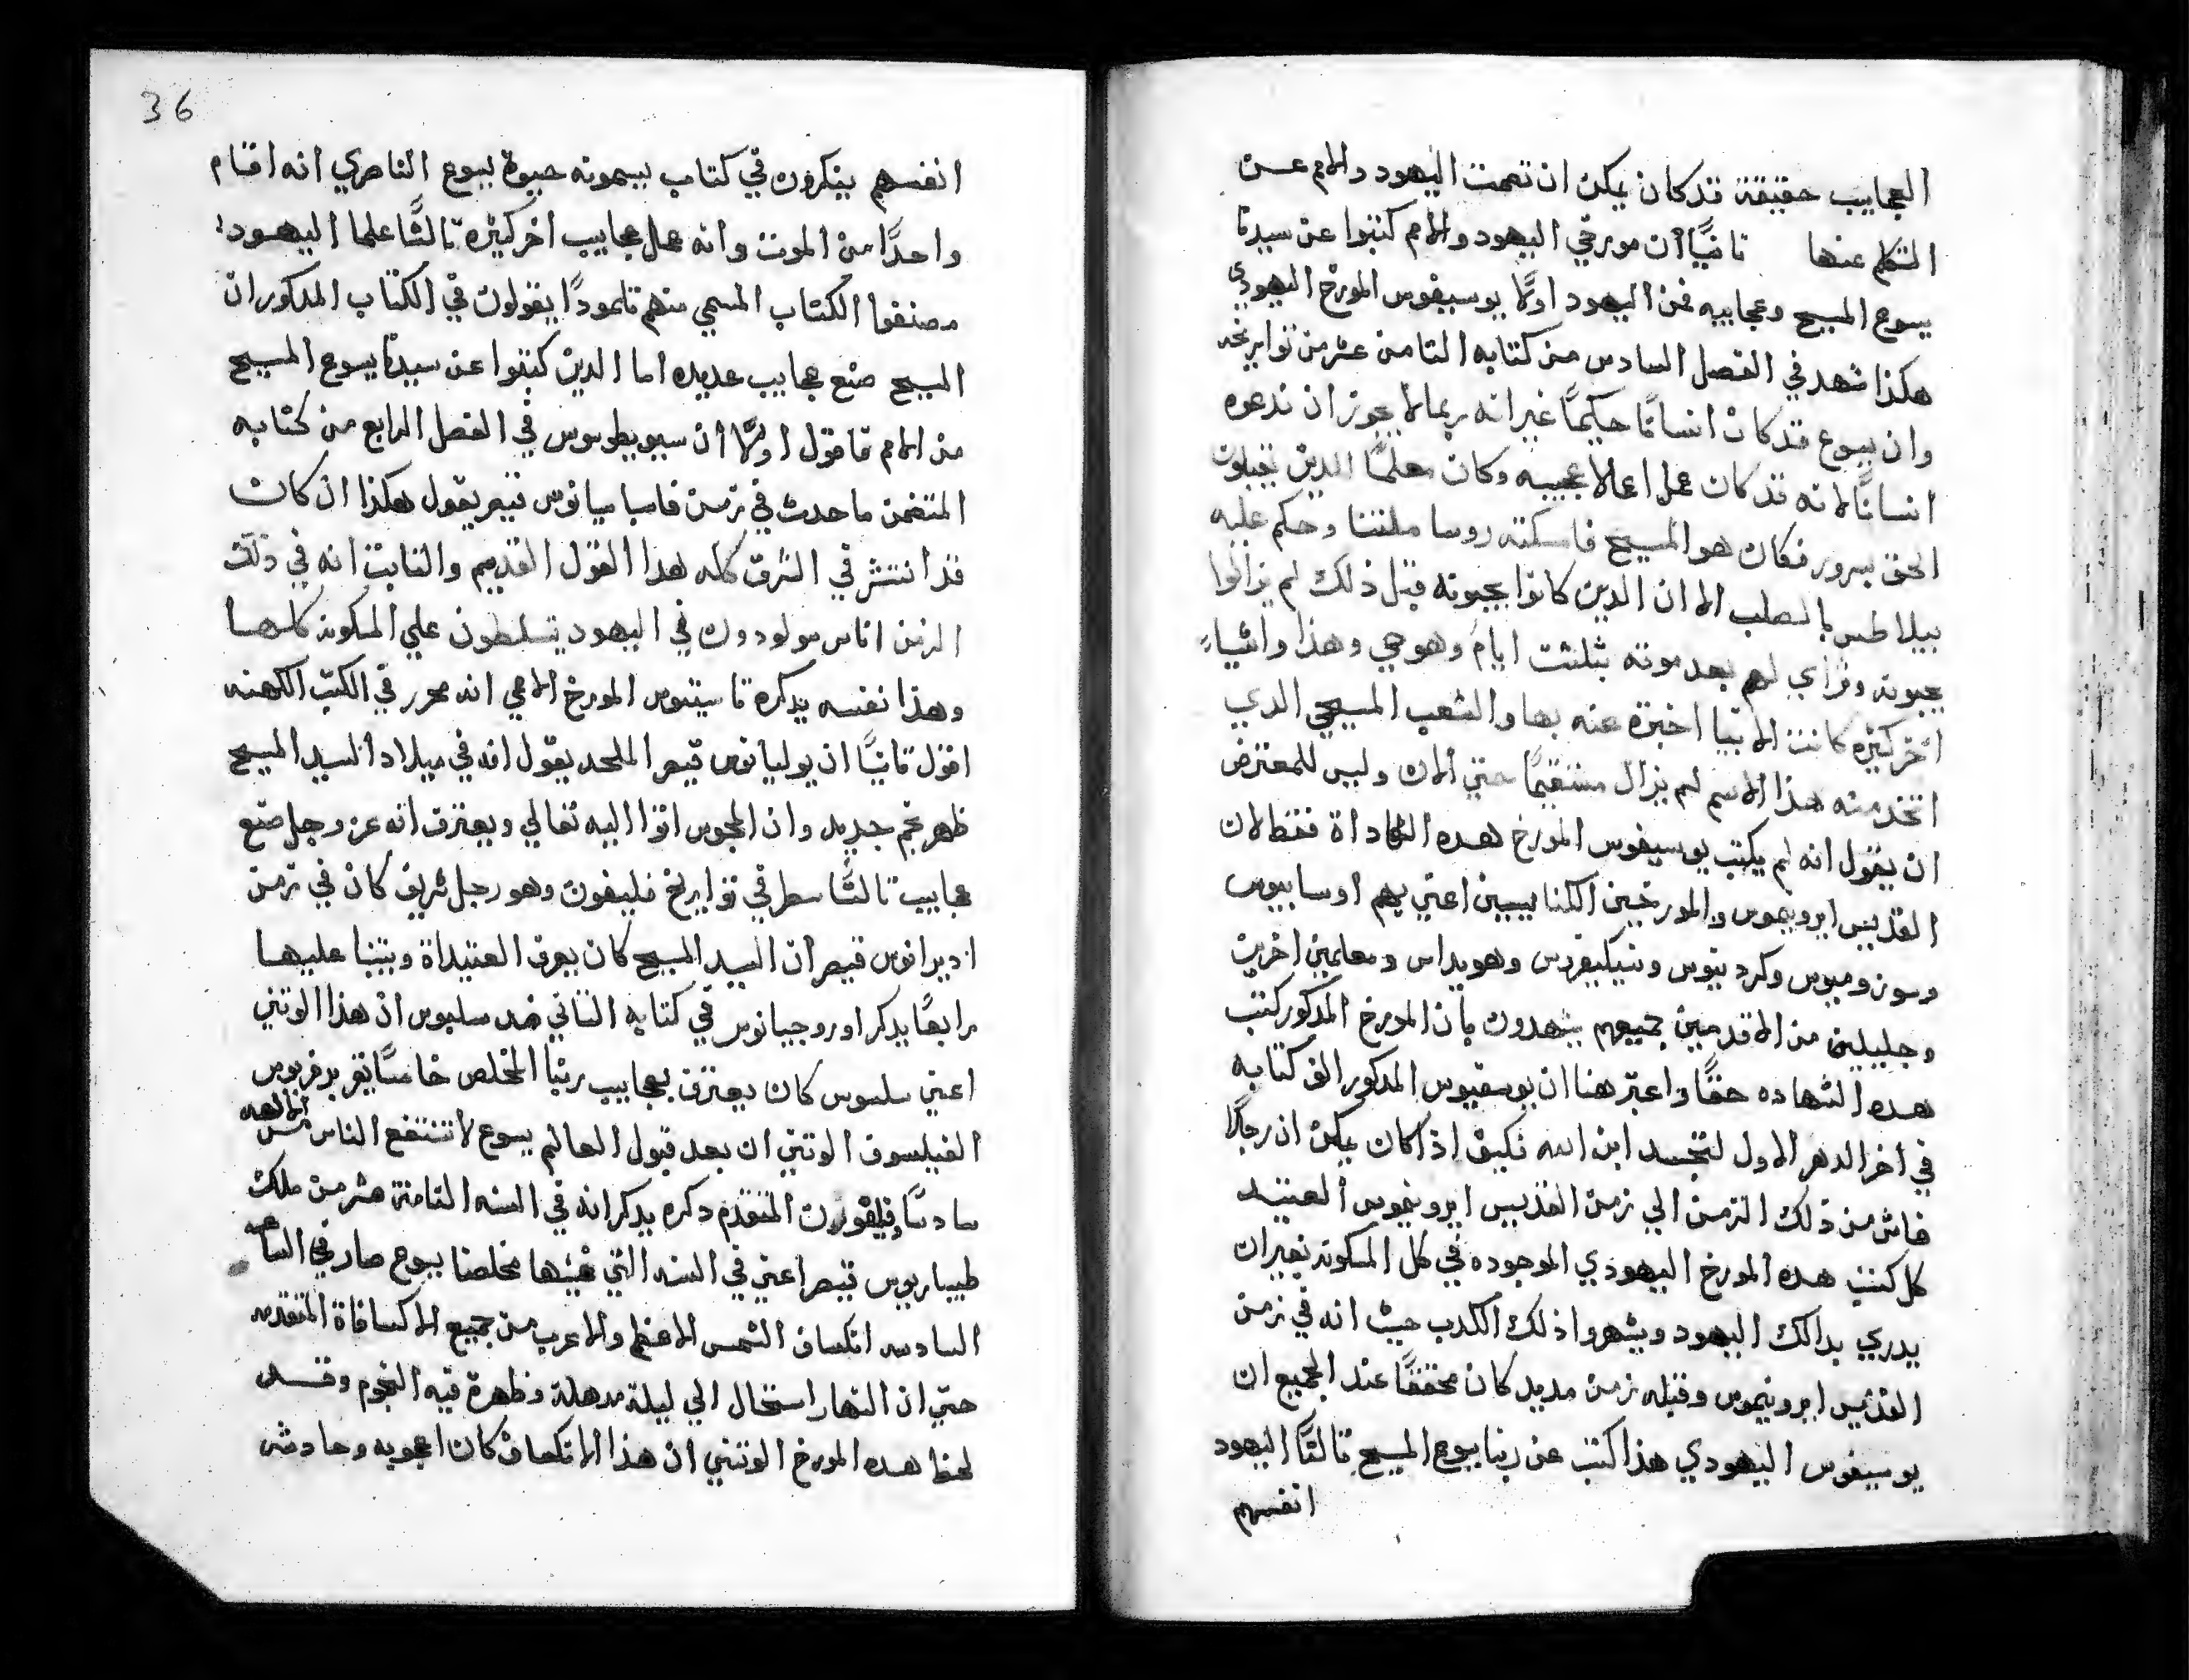 العجايب حقيقة قد كان يمكن ان تصمت اليهود والامم عن
التكلم عنها ثانيًا أن مورخي اليهود والامم كتبوا عن سيدنا
يسوع المسيح وعجايبه فمن اليهود اولًا يوسيفوس المورخ اليهودي
هكذا شهد في الفصل السادس من كتابه الثامن عشر من تواريخه
وان يسوع قد كان انسانًا حكيمًا غير انه ربما لا يجوز ان ندعوه
انسانًا لانه قد كان عمل اعمالا عجيبه وكان معلمًا الذين يقبلون
الحق بسرور فكان هو المسيح فاسكته روسا ملتنا وحكم عليه
بيلاطس بالصلب الا ان الذين كانوا يحبونه قبل ذلك لم يزالوا
يحبونه وتراي لهم بعد موته بثلثت ايام وهو حي وهذا واشياءً
أخر كثيره كانت الانبيا اخبرة عنه بها والشعب المسيحي الدي
اتخد منه هذا الاسم لم يزال مستقيمًا حتي الان وليس للمعترض
ان يقول انه لم يكتب يوسيفوس المورخ هده الشهاداة فقط لان
القديس ايرونيموس والمورخين الكنايسيين اعني بهم اوسابيوس
وسوزوميوس وكردينوس ونيكيفورس وهويداس ومعلمين اخرين
وجليلين من الاقدمين جميعهم يشهدون بأن المورخ المدكور كتب
هده الشهاده حقًا واعتبر هنا ان يوسفيوس المدكور الف كتابه
في اخر الدهر الاول لتجسد ابن الله فكيف اذا كان يمكن ان رجلًا
فاش من ذلك الزمن الي زمن القديس ايرونيموس العتيد
كل كتب هده المورخ اليهودي الموجوده في كل المسكونه بغير ان
يدري بدالك اليهود ويشهروا ذلك الكدب حيث انه في زمن
القديس ايرونيموس وقبله زمن مديد كان محققًا عند الجميع ان
يوسيفوس اليهودي هذا كتب عن ربنا يسوع المسيح ثالثًا اليهود
انفسهم
36
انفسهم يذكرون في كتاب يسمونه حيوة يسوع الناصري انه اقام
واحدًا من الموت وانه عمل عجايب اخر كثيرة ثالثًا علما اليهود
مصنفوا الكتاب المسمي منهم تلمودًا يقولون في الكتاب المدكور ان
المسيح صنع عجايب عديده اما الدين كتبوا عن سيدنا يسوع المسيح
من الامم فاقول اولًا أن سيويطوسوس في الفصل الرابع من كتابه
المتضمن ما حدث في زمن فاسباسيانوس قيصر يقول هكذا ان كان
قد انتشر في الشرق كله هدا القول القديم والثابت انه في ذلك
الزمن اناس مولودون في اليهود يتسلطون علي المسكونه كلها
وهذا نفسه يدكره تاسيتوس المورخ الاممي انه محرر في الكتب الكهنه
اقول ثانيًا ان يوليانوس قيصر الملحد يقول انه في ميلاد السيد المسيح
ظهر نجم جديد وان المجوس اتوا اليه تعالي ويعترف انه عز وجل صنع
عجايب ثالثًا سطر في تواريخ فليفون وهو رجل شريف كان في زمن
ادريانوس قيصر ان السيد المسيح كان يعرف العتيداة ويتنبا عليها
رابعًا يدكر اوروجيانوس في كتابه الثاني ضد سلبوس ان هذا الوتني
اعني سلسوس كان يعترف بعجايب ربنا المخلص خامسًا يقر برفريوس
الفيلسوف الوتني ان بعد قبول العالم يسوع لا تنتفع الناس من الالهه
سادسًا فليقون المتقدم دكره يدكر انه في السنه الثامنة عشر من ملك
طيباريوس قيصر اعني في السنه التي فيها مخلصنا يسوع صار في الساعه
السادسه انكساف الشمس الاعظم والاعرب من جميع الاكسافاة المتقدمه
حتي ان النهار استحال الي ليلة مدهلة وظهرة فيه النجوم وقد
لحظ هده المورخ الوتني ان هذا الانكساف كان اعجوبه وحادث